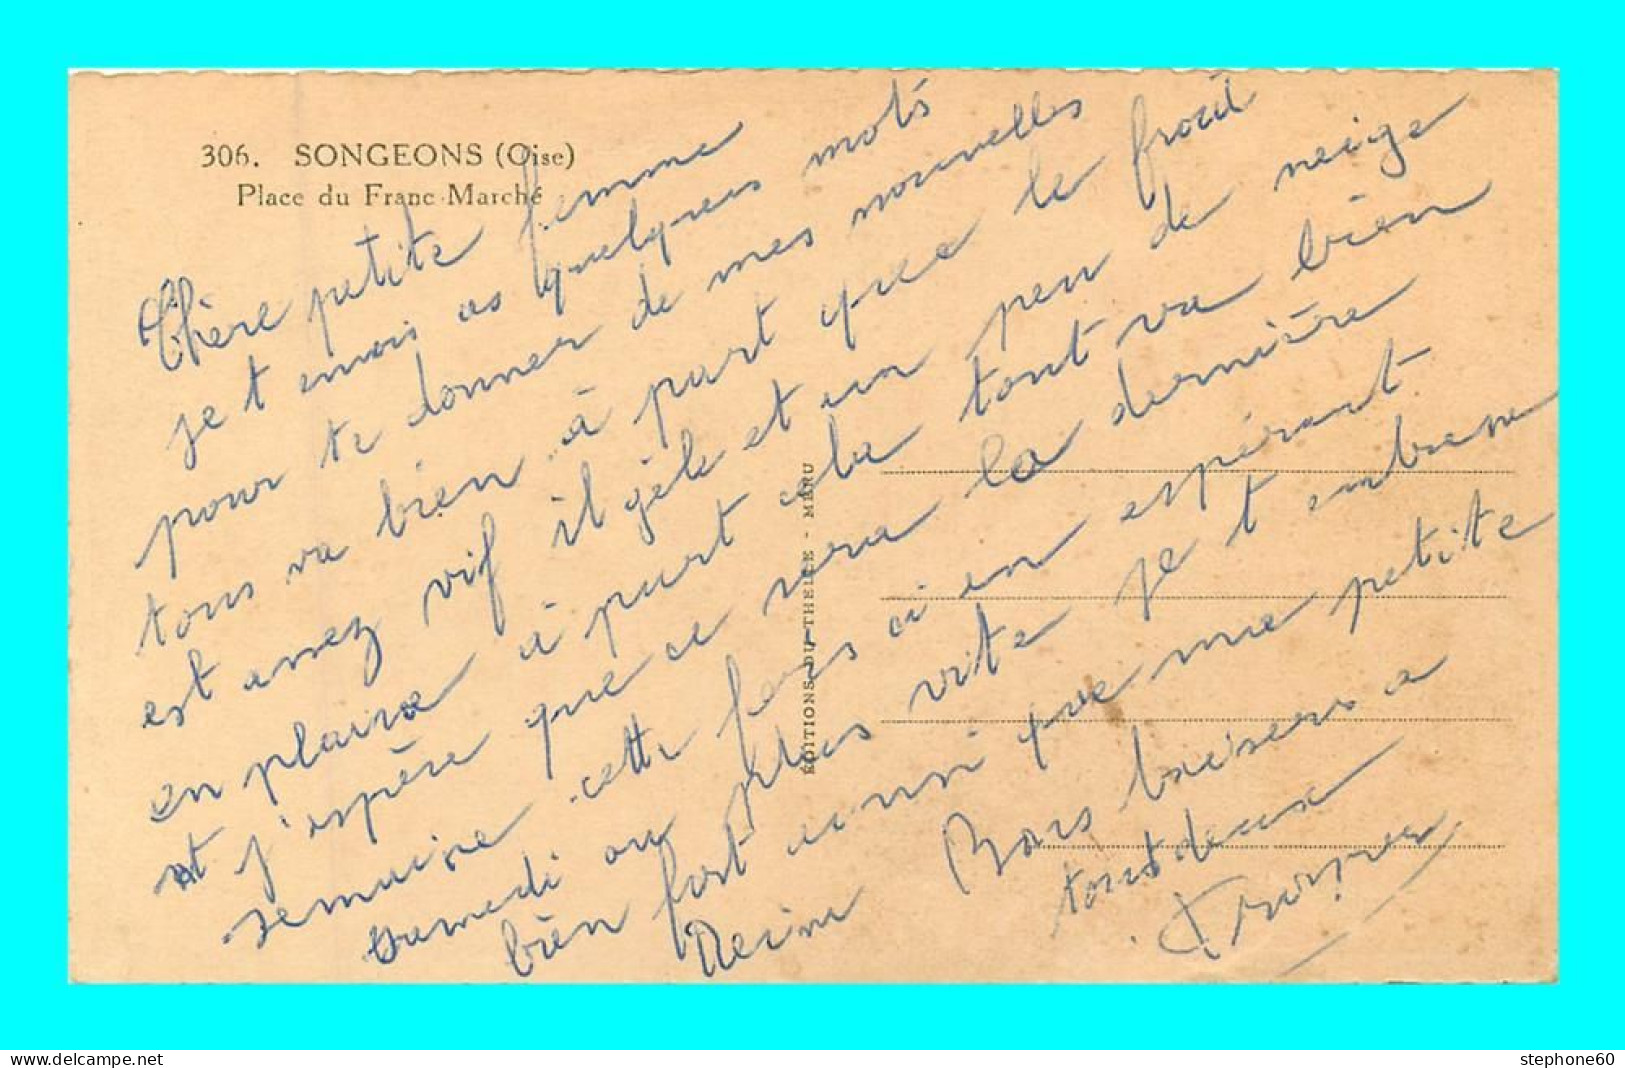 306. SONGEONS (Oise)
Place du Franc-Marché
Chère petite femme
je t envois as quelques mots
pour te donner de mes nouvelles
tous va bien à part que le froid
est assez vif il gèle et un peu de neige
en plaine à part cela tout va bien
et j'espère que ce sera la dernière
semaine cette fois ci en espérant
samedi ou plus vite je t embrasse
bien fort ainsi que ma petite
Reine Bons baisers a
tous deux
ÉDITIONS DU THELLE - MÉRU
www.delcampe.net
stephone60